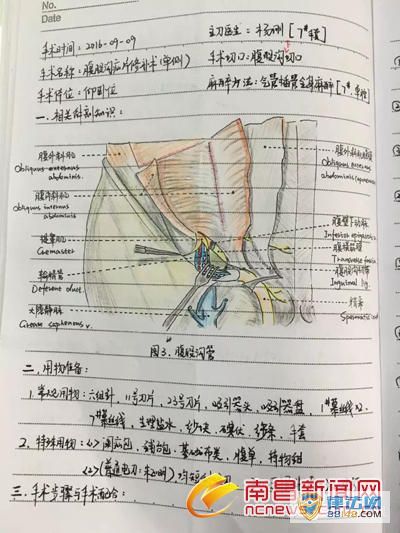 No.
Date
手术时间：2016-09-09
主刀医生：杨刚[7#手套]
手术名称：腹股沟疝片修补术(单侧)
手术切口：腹股沟切口
手术体位：仰卧位
麻醉方法：气管插管全身麻醉
一、相关解剖知识：
腹外斜肌
Obliquus externus
abdominis.
腹内斜肌
Obliquus internus
abdominis
提睾肌
Cremaster
输精管
Deferent duct.
大隐静脉
Great saphenous v.
腹外斜肌腱膜
Obliquus externus
abdominis (aponeurosis)
腹壁下动脉
Inferior epigastric a.
腹横筋膜
Transverse fascia
腹股沟韧带
Inguinal lig.
精索
Spermatic cord
图3.腹股沟管
二、用物准备：
1.常规用物：六组针，11号刀片，23号刀片，吸引器头，吸引器盘，1#慕丝线X2.
7#慕丝线，生理盐水，纱块，碘伏，纱条，手套
2.特殊用物：<1>阑疝包，辅韵包，基础布类，腹单，持物钳
<2>(普通电刀：朱明)
三、手术步骤与手术配合：
南昌新闻网
ncnews.c
建法网